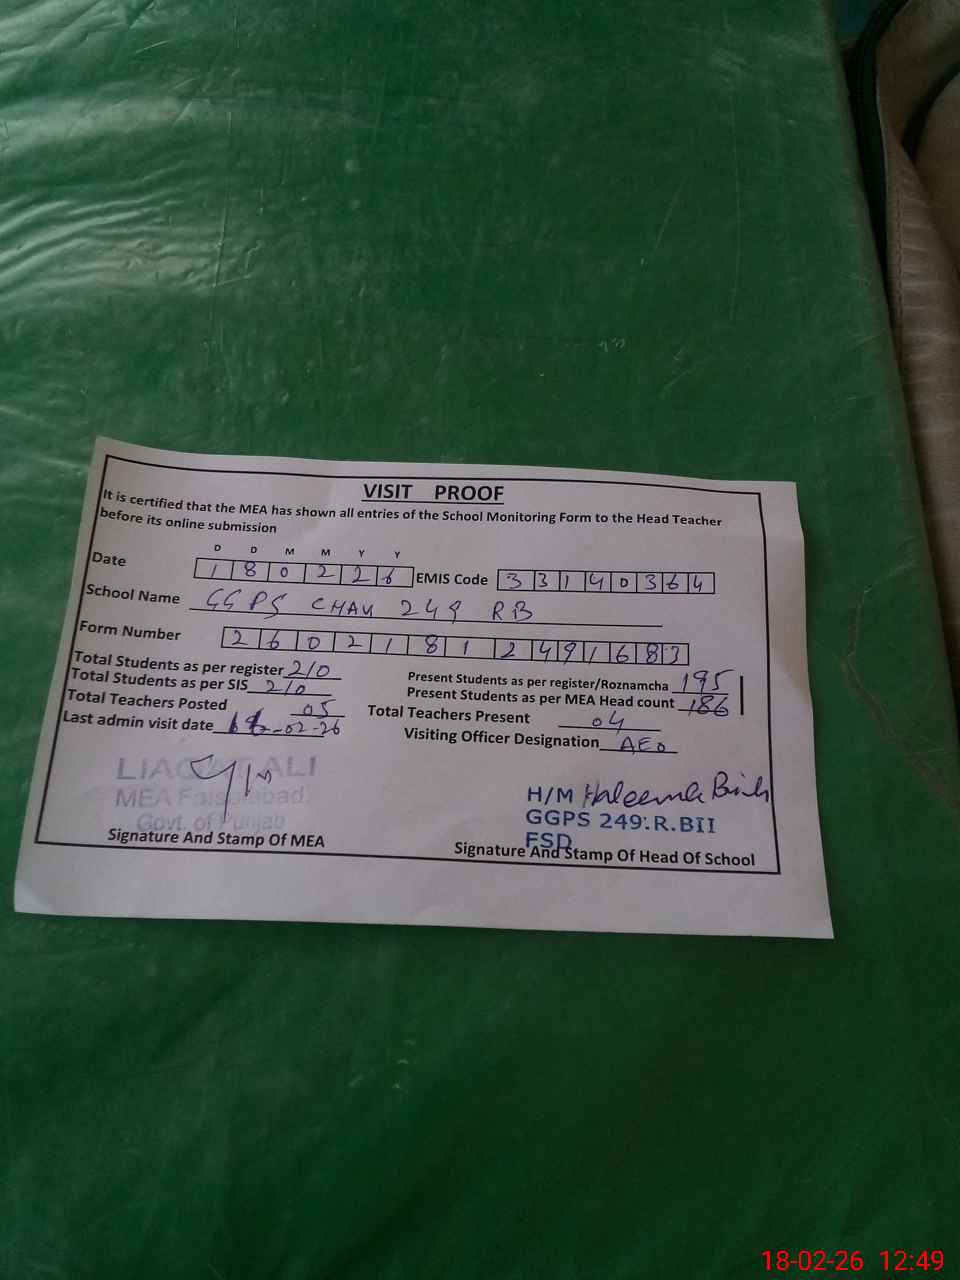 VISIT PROOF
It is certified that the MEA has shown all entries of the School Monitoring Form to the Head Teacher
before its online submission
D D M M Y Y
Date 1 8 0 2 2 6 EMIS Code 3 3 1 4 0 3 6 4
School Name GGPS CHAK 249 RB
Form Number 2 6 0 2 1 8 1 2 4 9 1 6 8 3
Total Students as per register 210 Present Students as per register/Roznamcha 195
Total Students as per SIS 210 Present Students as per MEA Head count 186
Total Teachers Posted 05 Total Teachers Present 04
Last admin visit date -02-26 Visiting Officer Designation AEO
LIAQAT ALI
MEA Faisalabad.
Govt. of Punjab
Signature And Stamp Of MEA
H/M Haleema
GGPS 249.R.BII
FSD
Signature And Stamp Of Head Of School
18-02-26 12:49